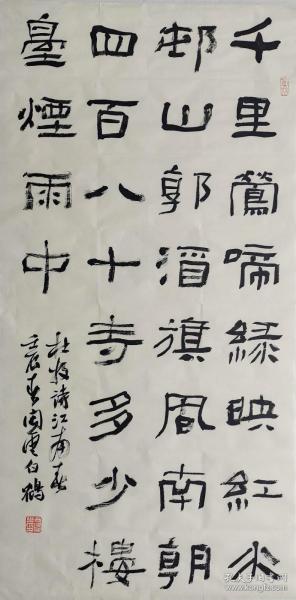 千里鶯啼緑映紅水
邨山郭酒旗風南朝
四百八十寺多少樓
臺煙雨中
杜牧詩江南春
壬辰
白鶴